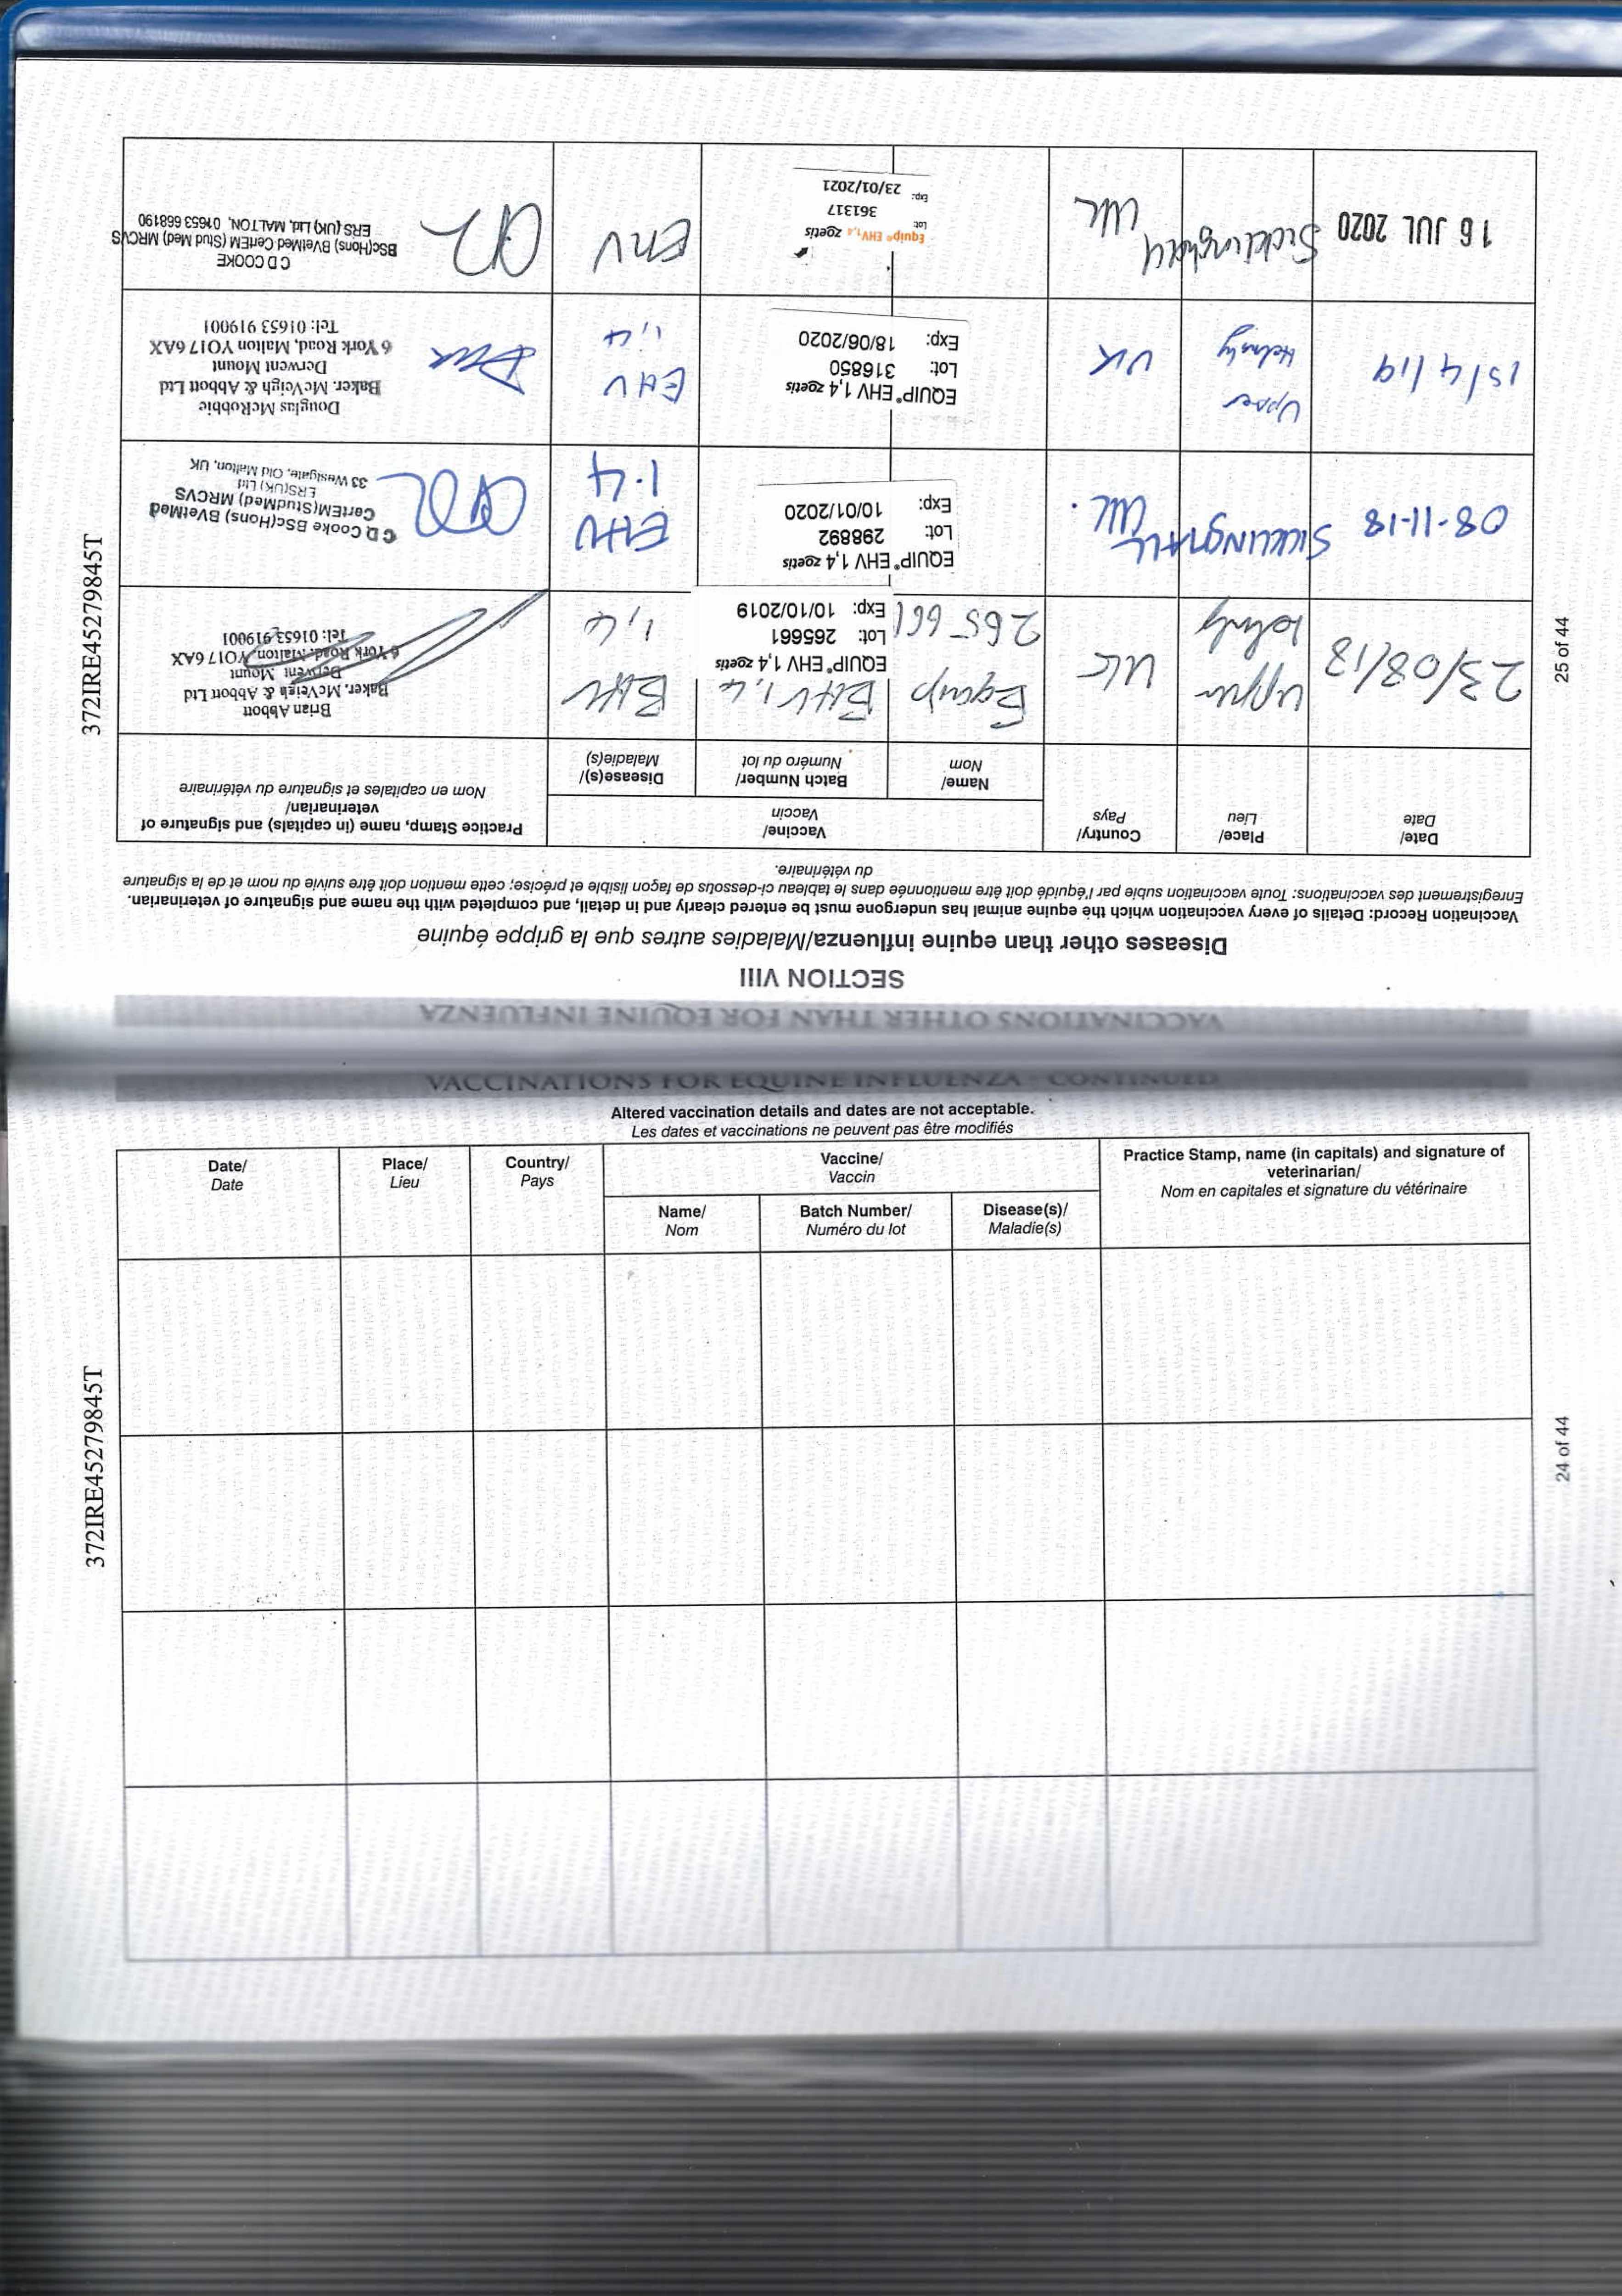 372IRE45279845T
24 of 44
VACCINATIONS FOR EQUINE INFLUENZA - CONTINUED
Altered vaccination details and dates are not acceptable.
Les dates et vaccinations ne peuvent pas être modifiés
Date/
Date
Place/
Lieu
Country/
Pays
Vaccine/
Vaccin
Name/
Nom
Batch Number/
Numéro du lot
Disease(s)/
Maladie(s)
Practice Stamp, name (in capitals) and signature of
veterinarian/
Nom en capitales et signature du vétérinaire
372IRE45279845T
25 of 44
VACCINATIONS OTHER THAN FOR EQUINE INFLUENZA
SECTION VIII
Diseases other than equine influenza/Maladies autres que la grippe équine
Vaccination Record: Details of every vaccination which the equine animal has undergone must be entered clearly and in detail, and completed with the name and signature of veterinarian.
Enregistrement des vaccinations: Toute vaccination subie par l'équidé doit être mentionnée dans le tableau ci-dessous de façon lisible et précise; cette mention doit être suivie du nom et de la signature
du vétérinaire.
Date/
Date
Place/
Lieu
Country/
Pays
Vaccine/
Vaccin
Name/
Nom
Batch Number/
Numéro du lot
Disease(s)/
Maladie(s)
Practice Stamp, name (in capitals) and signature of
veterinarian/
Nom en capitales et signature du vétérinaire
23/08/18
Upper
UK
Equip
EHV 1,4
265661
EQUIP® EHV 1,4 zoetis
Lot: 265661
Exp: 10/10/2019
EHV
1,4
Brian Abbott
Baker, McVeigh & Abbott Ltd
Derwent Mount
6 York Road, Malton, YO17 6AX
Tel: 01653 919001
08-11-18
SICKLINGHALL
UK.
EQUIP® EHV 1,4 zoetis
Lot: 298892
Exp: 10/01/2020
EHV
1.4
C D Cooke BSC(Hons) BVetMed
CertEM(StudMed) MRCVS
ERS(UK) Ltd
33 Westgate, Old Malton, UK
15/4/19
Upper
Helmsley
UK
EQUIP® EHV 1,4 zoetis
Lot: 316850
Exp: 18/06/2020
EHV
1,4
Douglas McRobbie
Baker, McVeigh & Abbott Ltd
Derwent Mount
6 York Road, Malton YO17 6AX
Tel: 01653 919001
16 JUL 2020
Sicklinghall
UK
Equip® EHV1,4 zoetis
Lot: 361317
Exp: 23/01/2021
EHV
C D COOKE
BSc(Hons) BVetMed CertEM (Stud Med) MRCVS
ERS (UK) Ltd, MALTON, 01653 668190